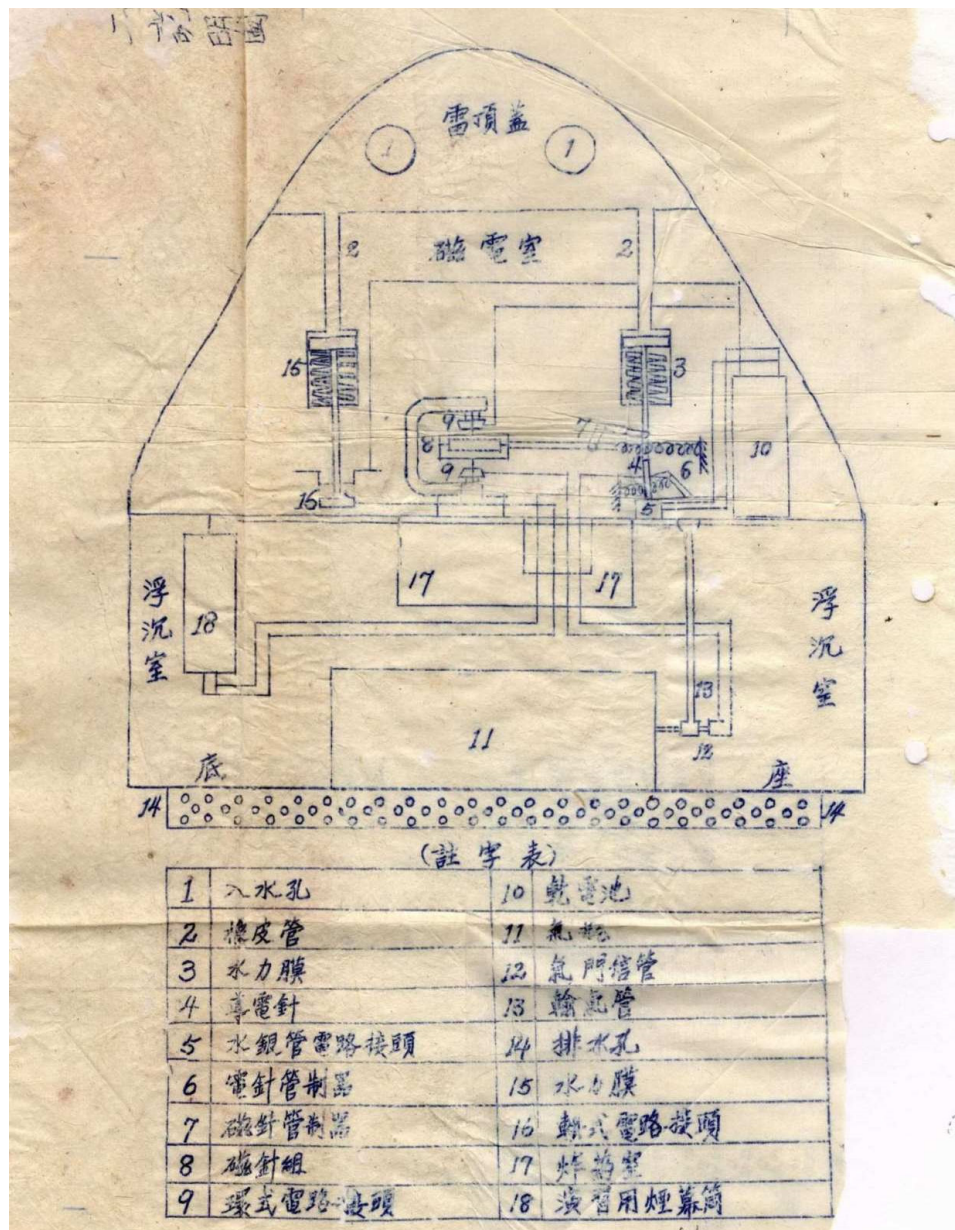 雷頂蓋
1 1
2 磁電室 2
15 3
9 7
8
9 4 6 10
16 5
17 17
浮沉室 18 浮沉室
13
11 12
底 座
14 14
(註字表)
1 入水孔 10 乾電池
2 橡皮管 11 氣瓶
3 水力膜 12 氣門信管
4 導電針 13 輸氣管
5 水銀管電路接頭 14 排水孔
6 電針管制器 15 水力膜
7 磁針管制器 16 鞘式電路接頭
8 磁針組 17 炸藥室
9 環式電路接頭 18 演習用煙幕筒